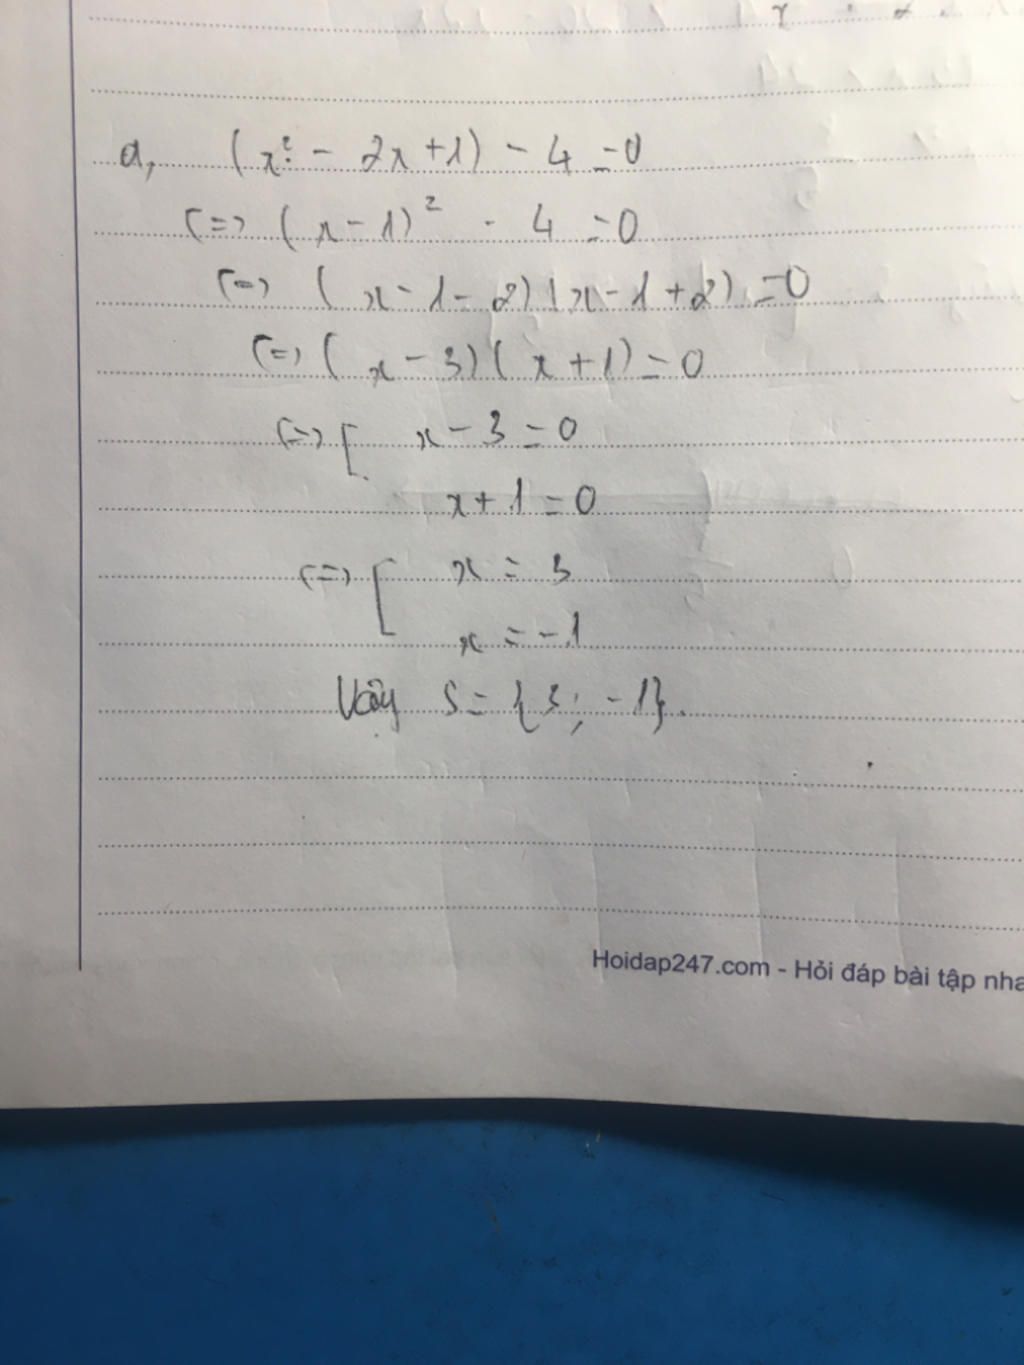 a, (x² - 2x + 1) - 4 = 0
(=) (x - 1)² - 4 = 0
(=) (x - 1 - 2)(x - 1 + 2) = 0
(=) (x - 3)(x + 1) = 0
(=) [ x - 3 = 0
x + 1 = 0
(=) [ x = 3
x = -1
Vậy S = {3; -1}.
Hoidap247.com - Hỏi đáp bài tập nha